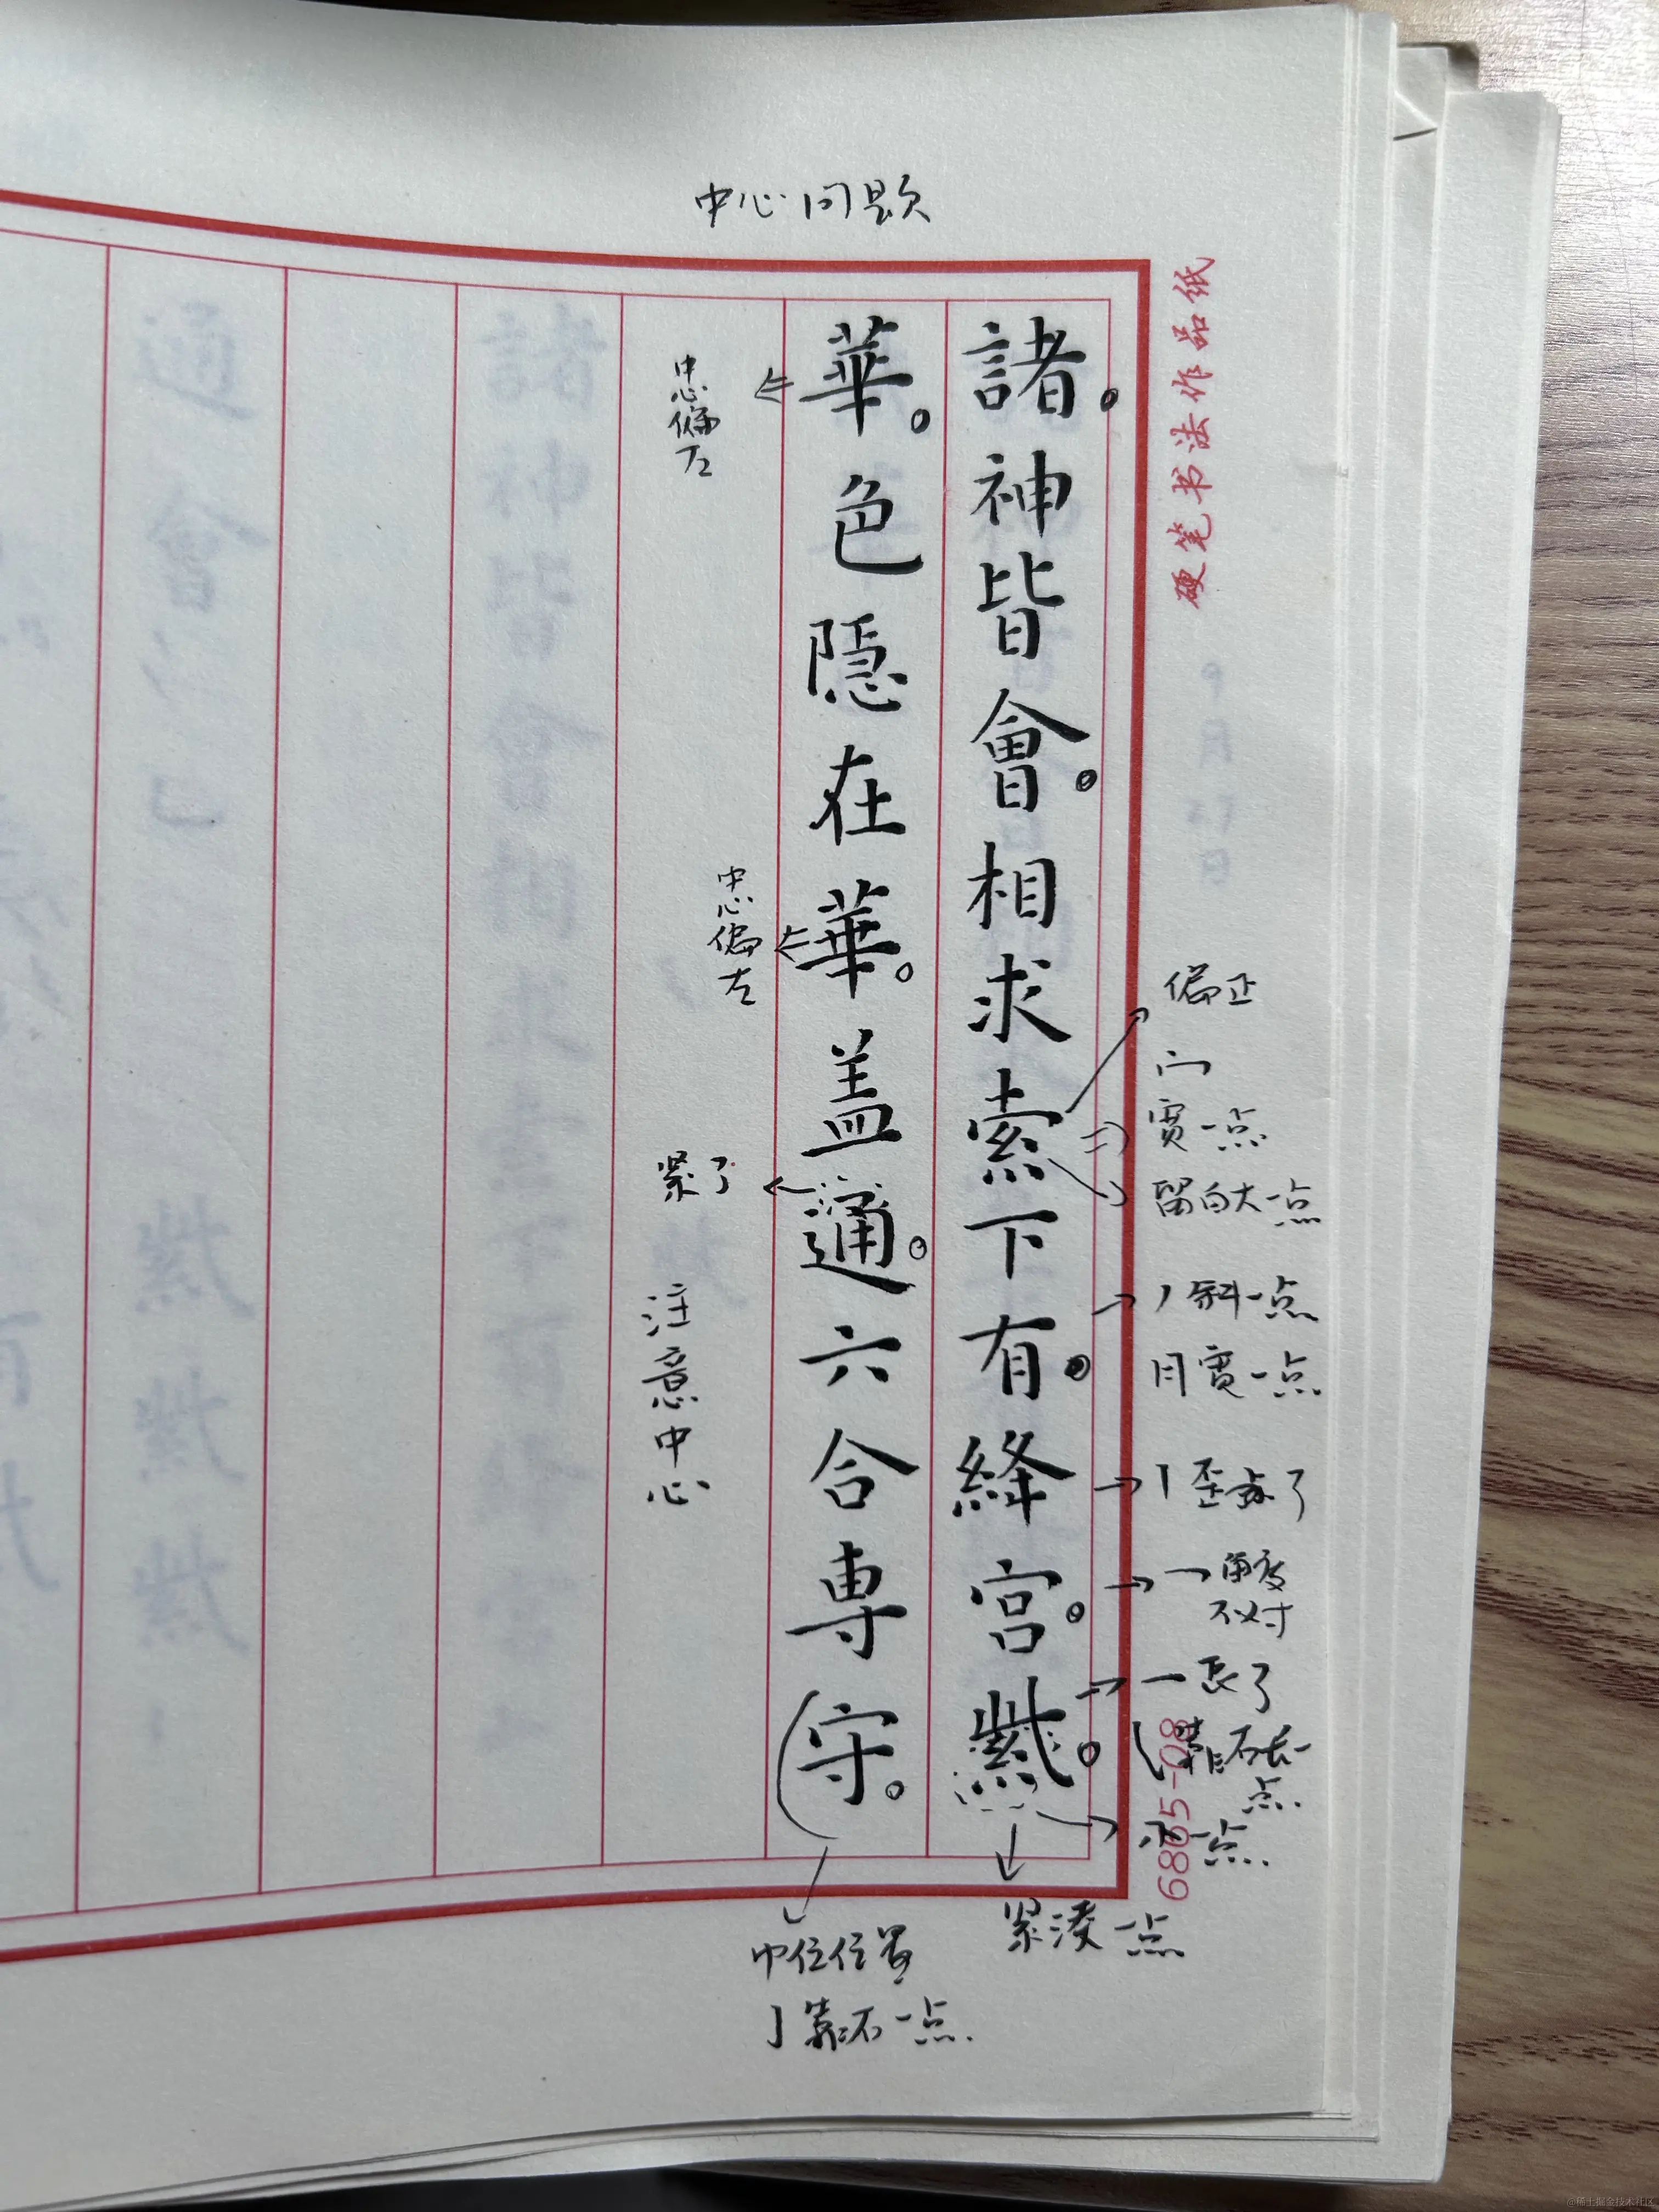 中心问题
硬笔书法作品纸
諸。神皆會。相求索下有。絳宮。
華。色隱在華。盖通。六合專守。
中心偏左
中心偏左
紧了
注意中心
偏正
宽一点
留白大一点
丿斜一点
月宽一点
丨歪了
一角度
不对
一长了
点
小一点
紧凑一点
亅靠右一点
6865-08
@稀土掘金技术社区